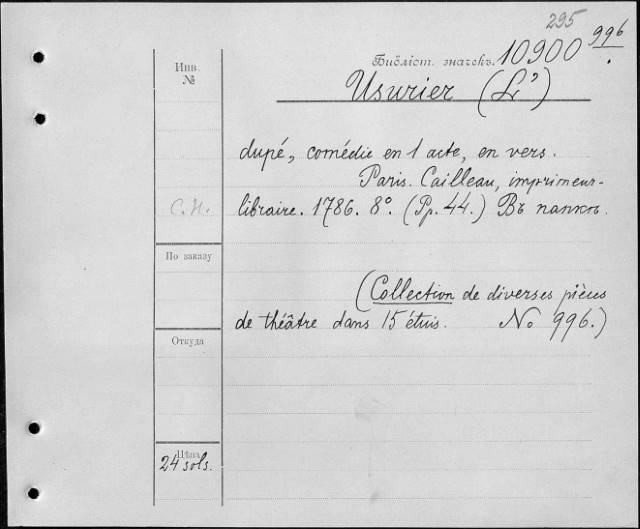 295
Библіот. значекъ. 10900 996.
Инв. №
Usurier (L')
dupé, comédie en 1 acte, en vers.
Paris. Cailleau, imprimeur-
С.Н.
libraire. 1786. 8°. (Pp. 44.) Въ папкѣ.
По заказу
(Collection de diverses pièces
de théâtre dans 15 étuis. No 996.)
Откуда
Цѣна
24 sols.